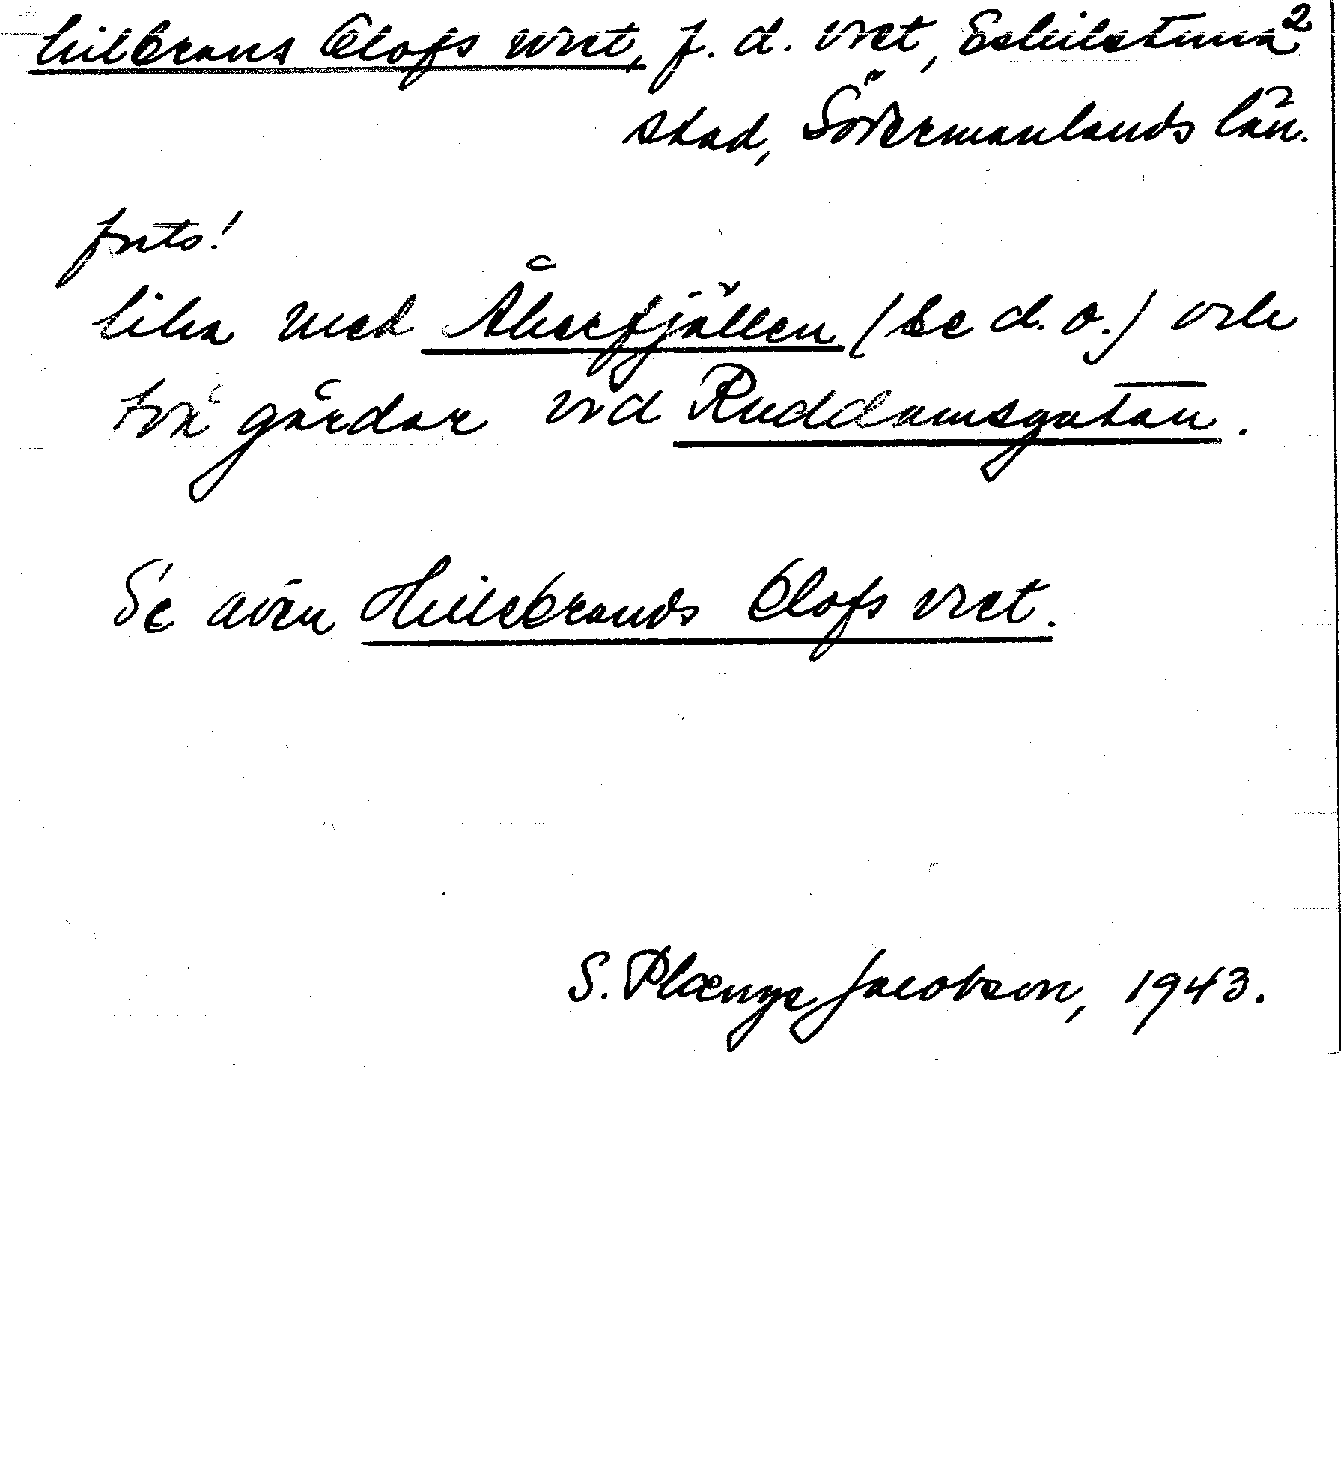 hilbrans Olofs wret, f. d. vret, Eskilstuna 2
stad, Södermanlands län.
forts!
lika med Åkerfjällen (se d. o.) och
två gårdar vid Ruddamsgatan.
Se även Hillebrands Olofs vret.
S. Plænge Jacobson, 1943.